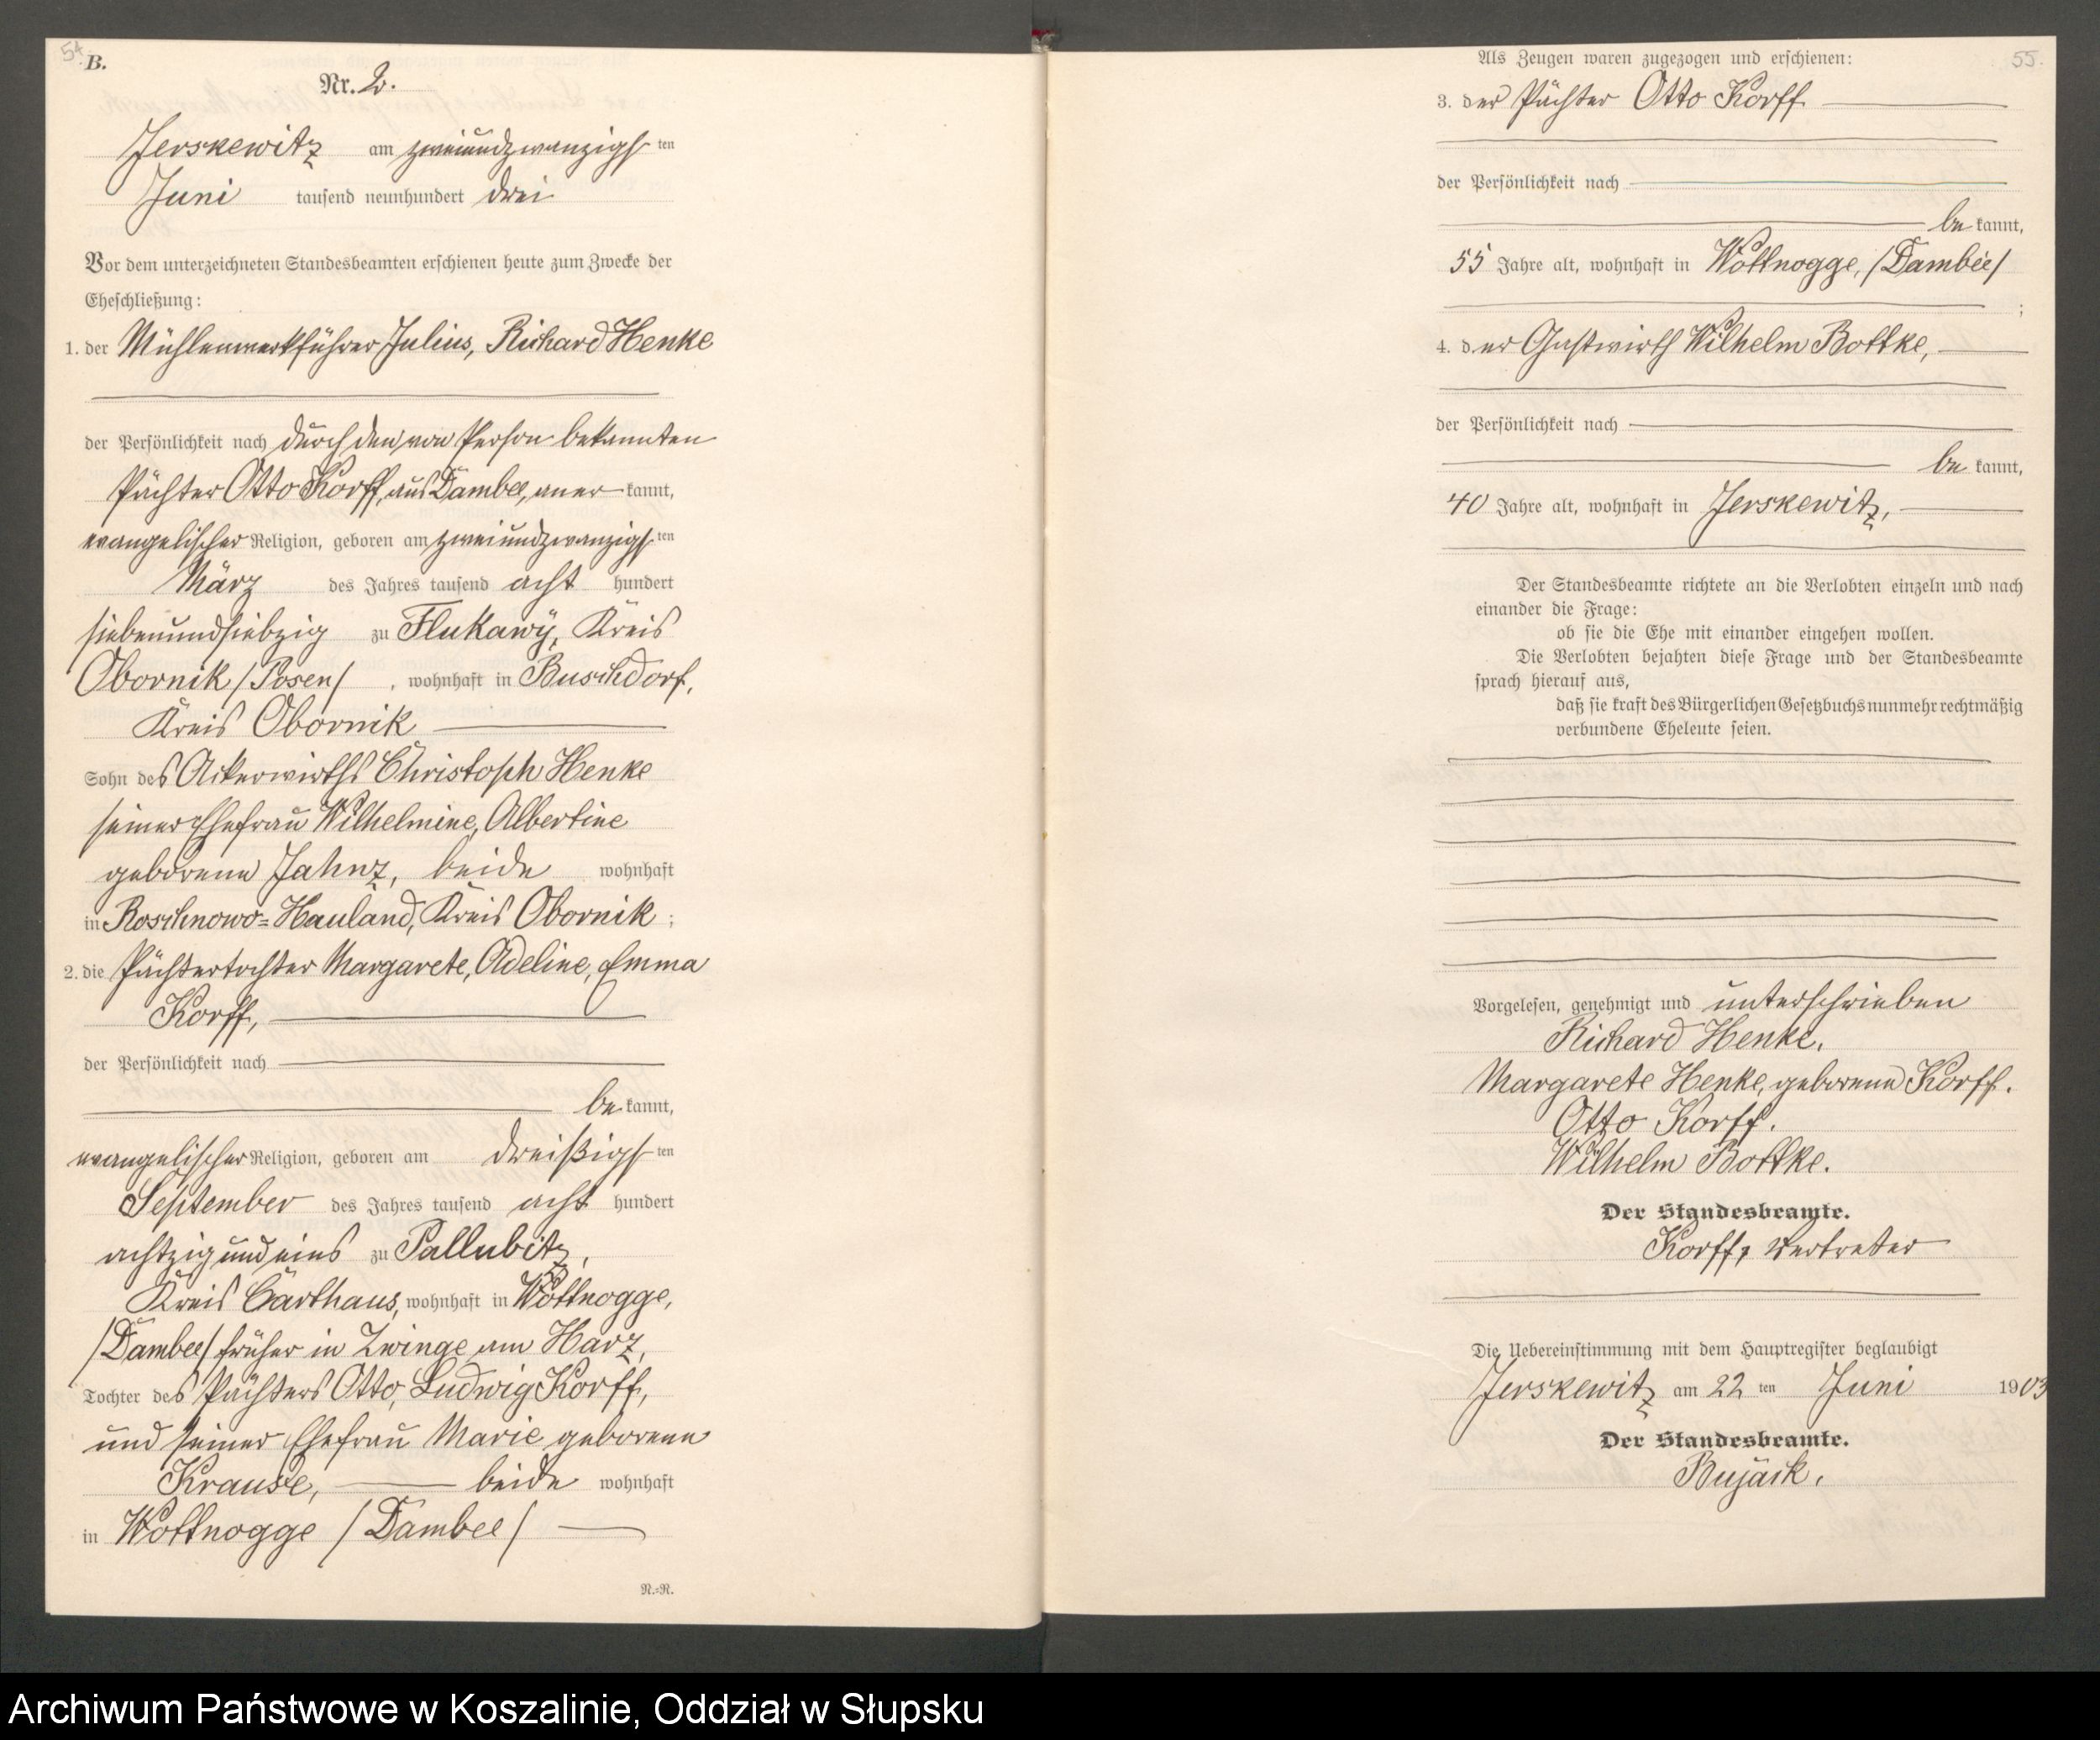 54.
B.
Nr. 2.
Jerskewitz am zweiundzwanzigsten
Juni tausend neunhundert drei
Vor dem unterzeichneten Standesbeamten erschienen heute zum Zwecke der
Eheschließung:
1. der Mühlenwerkführer Julius, Richard Henke
der Persönlichkeit nach durch den von Person bekannten
Pächter Otto Korff, aus Dambee, anerkannt,
evangelischer Religion, geboren am zweiundzwanzigsten
März des Jahres tausend acht hundert
siebenundsiebzig zu Flukawy, Kreis
Obornik /Posen/, wohnhaft in Buschdorf,
Kreis Obornik
Sohn des Ackerwirths Christoph Henke
seiner Ehefrau Wilhelmine, Albertine
geborene Jahnz, beide wohnhaft
in Roschnowo=Hauland, Kreis Obornik;
2. die Pächtertochter Margarete, Adeline, Emma
Korff,
der Persönlichkeit nach
bekannt,
evangelischer Religion, geboren am dreißigsten
September des Jahres tausend acht hundert
achtzig und eins zu Pallubitz,
Kreis Carthaus, wohnhaft in Wottnogge,
/Dambee/ früher in Zwinge am Harz,
Tochter des Pächters Otto, Ludwig Korff,
und seiner Ehefrau Marie geborene
Krause, beide wohnhaft
in Wottnogge /Dambee/
N.=N.
55.
Als Zeugen waren zugezogen und erschienen:
3. der Pächter Otto Korff
der Persönlichkeit nach
bekannt,
55 Jahre alt, wohnhaft in Wottnogge, /Dambee/
;
4. der Gastwirth Wilhelm Bottke,
der Persönlichkeit nach
bekannt,
40 Jahre alt, wohnhaft in Jerskewitz,
Der Standesbeamte richtete an die Verlobten einzeln und nach
einander die Frage:
ob sie die Ehe mit einander eingehen wollen.
Die Verlobten bejahten diese Frage und der Standesbeamte
sprach hierauf aus,
daß sie kraft des Bürgerlichen Gesetzbuchs nunmehr rechtmäßig
verbundene Eheleute seien.
Vorgelesen, genehmigt und unterschrieben
Richard Henke.
Margarete Henke, geborene Korff.
Otto Korff.
Wilhelm Bottke.
Der Standesbeamte.
Korff, Vertreter
Die Uebereinstimmung mit dem Hauptregister beglaubigt
Jerskewitz am 22 ten Juni 1903
Der Standesbeamte.
Bujack.
Archiwum Państwowe w Koszalinie, Oddział w Słupsku